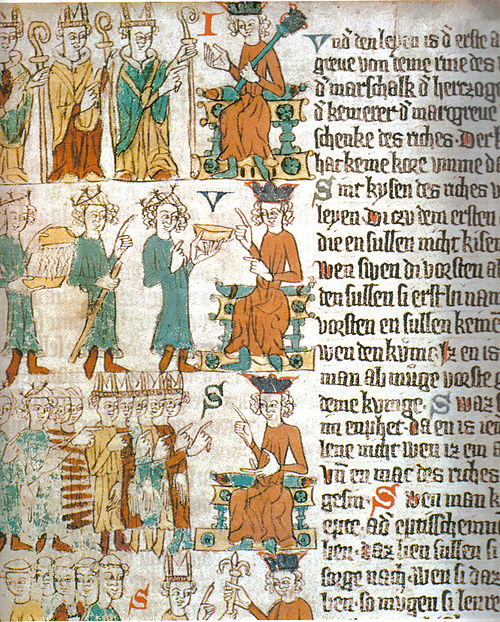 I
Vnd den leyen is d erste
greue von deme rine des
d marschalk d herczog
d kemerer d margreue
schenke des riches. Der
hat keine kore vmme
V
Sint kysen des riches
leyen. Di czu dem ersten
die en sullen nicht kise
wen swen di vorsten
den sullen si erst bi nam
vorsten en sullen keine
wen den kvnic. Iz en is
man ab muge vorste
S
deme kvnge. Swaz
im enphet. da en is
lene nicht wen iz ein
vn en mac des riches
gesin. Swen man
hen. daz hen sullen si
S
sorge nach. wen si daz
ben. so mugen si